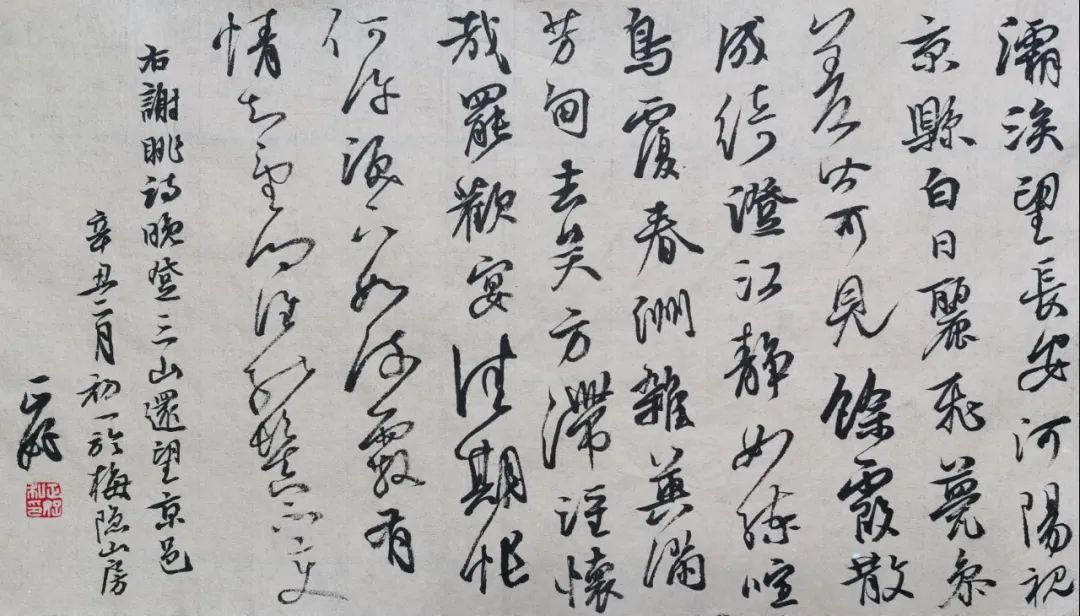 灞涘望長安河陽視
京縣白日麗飛甍參
差皆可見餘霞散
成綺澄江静如練喧
鳥覆春洲雜英滿
芳甸去矣方滯淫懷
哉罷歡宴佳期悵
何許淚下如流霰有
情知望鄉誰能鬒不變
右謝眺詩晚登三山還望京邑
辛丑二月初一於梅隐山房